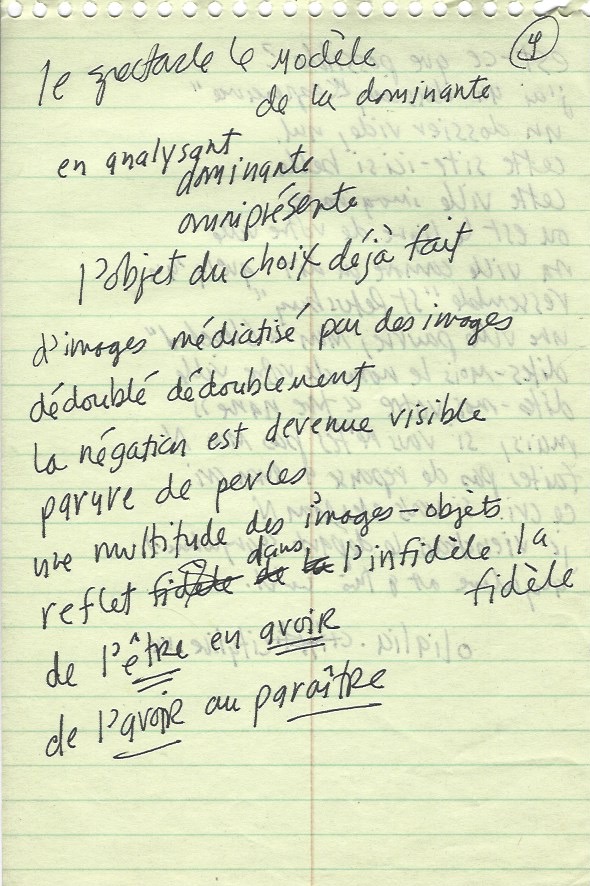 4
le spectacle le modèle
de la dominante
en analysant
dominante
omniprésente
l'objet du choix déjà fait
d'images médiatisé par des images
dédoublé dédoublement
la négation est devenue visible
parure de perles
une multitude des images-objets
reflet fidèle de la dans l'infidèle la
fidèle
de l'être en avoir
de l'avoir au paraître